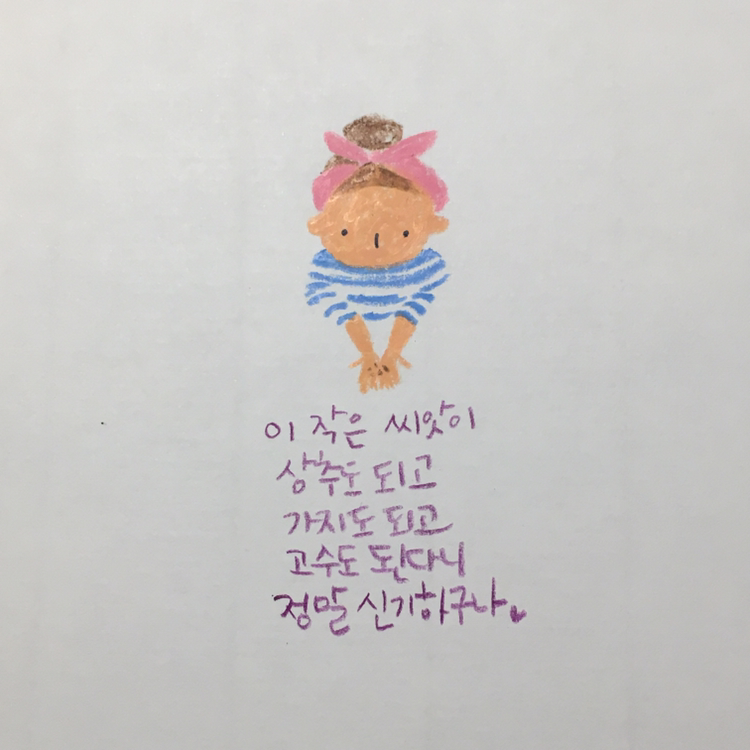 이 작은 씨앗이
상추도 되고
가지도 되고
고수도 된다니
정말 신기하구나